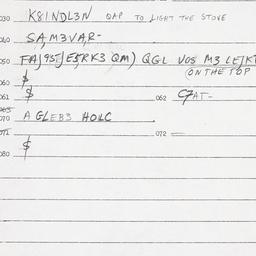 030 K8INDL3N QAP TO LIGHT THE STOVE
040 SA,M3VAR-
050 FA,95T,E,5RK3 QM) QGL VOS M3 LE,K
(ON THE TOP
060 $
061 $ 062 C7AT-
070 A GLEB3 HOLC
071 072 —
080 $